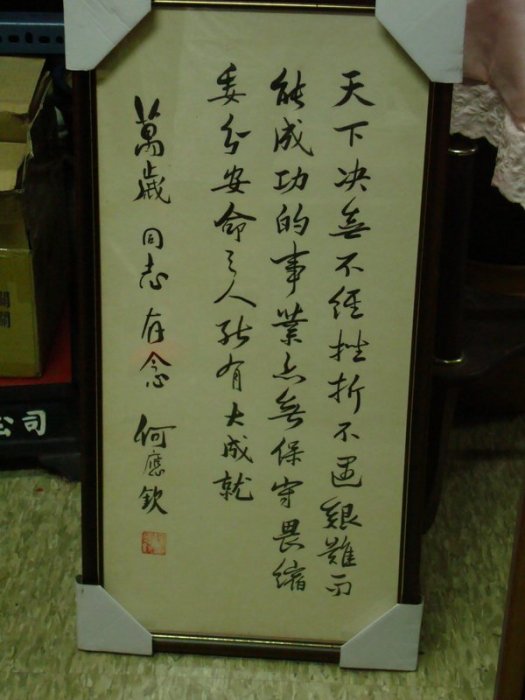 天下决無不經挫折不遇艱難而
能成功的事業亦無保守畏縮
委分安命之人能有大成就
萬歲同志存念 何應欽
公司